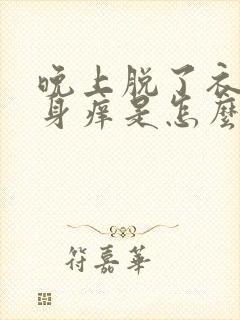 晚上脱了衣
身痒是怎麼
符嘉華